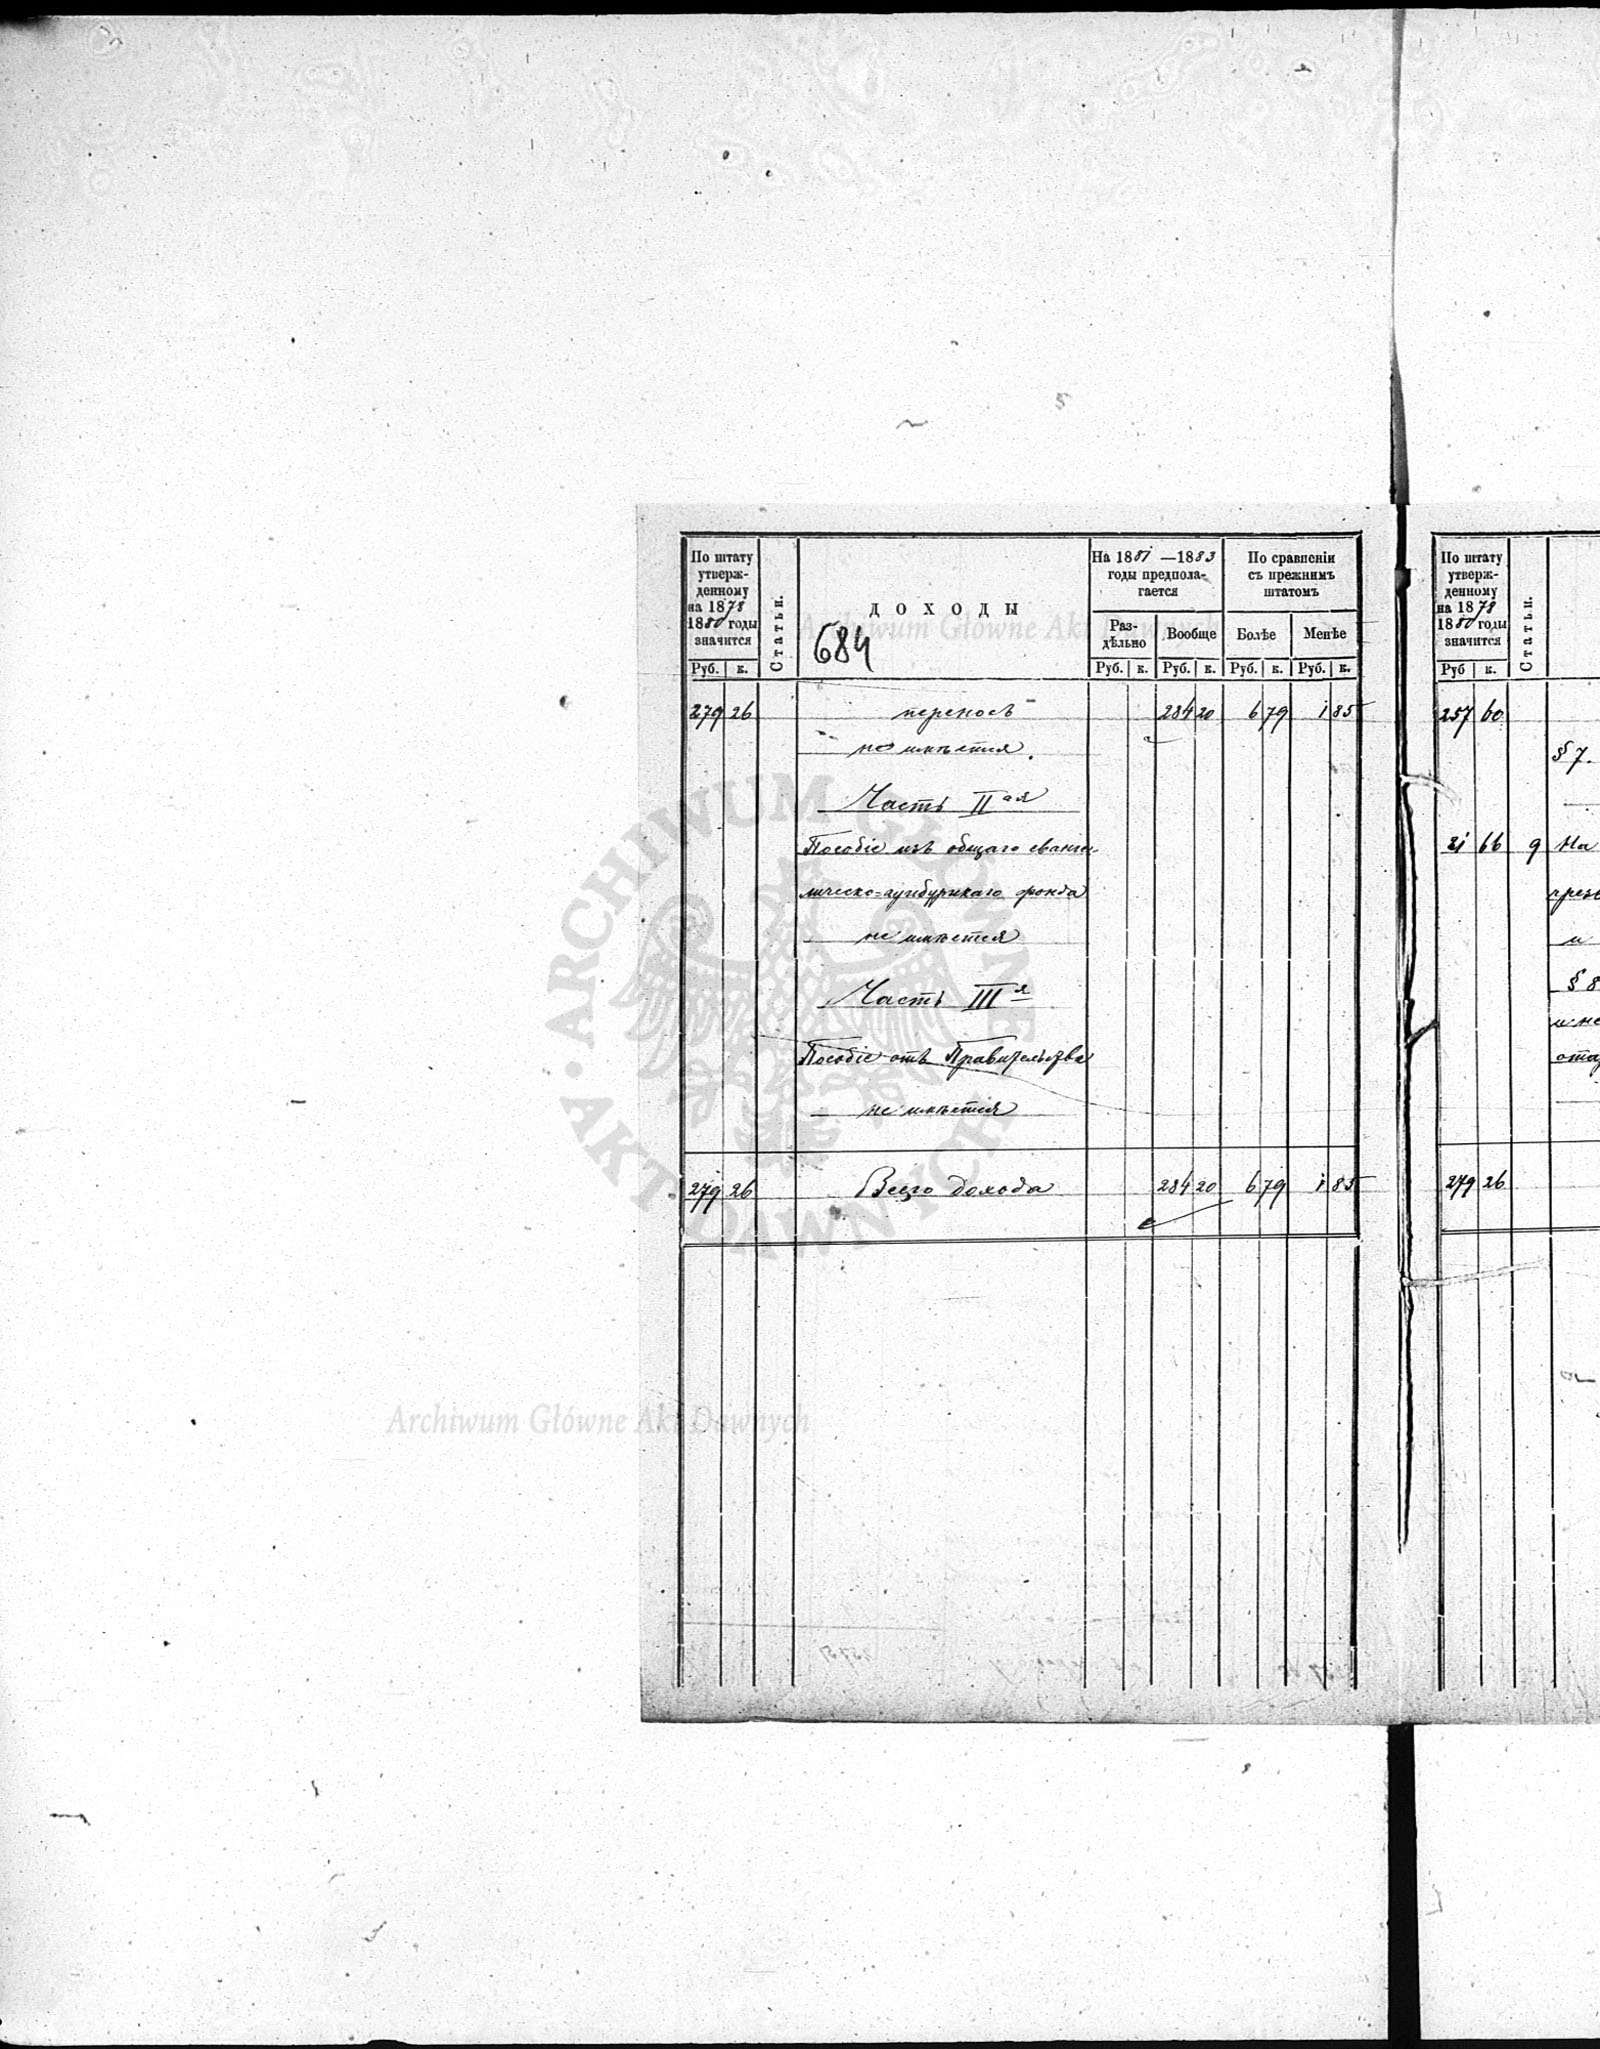 По штату
утверж-
денному
на 1878
1880 годы
значится
Руб. к.
Статьи.
ДОХОДЫ
684
На 1881 —1883
годы предпола-
гается
Раз-
дѣльно
Вообще
Руб. к. Руб. к.
По сравненіи
съ прежнимъ
штатомъ
Болѣе Менѣе
Руб. к. Руб. к.
279 26 переносъ 284 20 6 79 1 85
не имѣется
Часть IIая
Пособіе изъ общаго еванге-
лическо=аугсбургскаго фонда
не имѣется
Часть IIIя
Пособіе отъ Правительства
не имѣется
279 26 Всего дохода 284 20 6 79 1 85
По штату
утверж-
денному
на 1878
1880 годы
значится
Руб к.
Статьи.
257 60
§ 7.
21 66 9 На
и
§ 8
279 26
ARCHIWUM GŁÓWNE AKT DAWNYCH
Archiwum Główne Akt Dawnych
Archiwum Główne Akt Dawnych